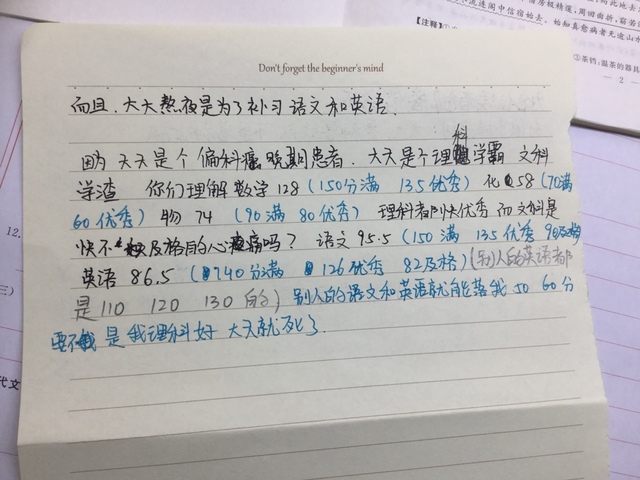 流连阁中信宿始去,始知真愈病者无逾山水
【注释】①
③茶铛:温茶的器具
— 2 —
Don't forget the beginner's mind
而且,大大熬夜是为了补习语文和英语.
因为 大大是个偏科癌晚期患者. 大大是个理科学霸 文科
学渣 你们理解数学128(150分满 135优秀) 化58(70满
60优秀) 物74 (90满 80优秀) 理科都快优秀 而文科是
快不及格的心痛吗? 语文95.5(150满 135优秀 90及格)
英语86.5 (140分满 126优秀 82及格)(别人的英语都
是110 120 130的) 别人的语文和英语就能落我50 60分
要不是我理科好 大大就死了.
12.
三)
代文